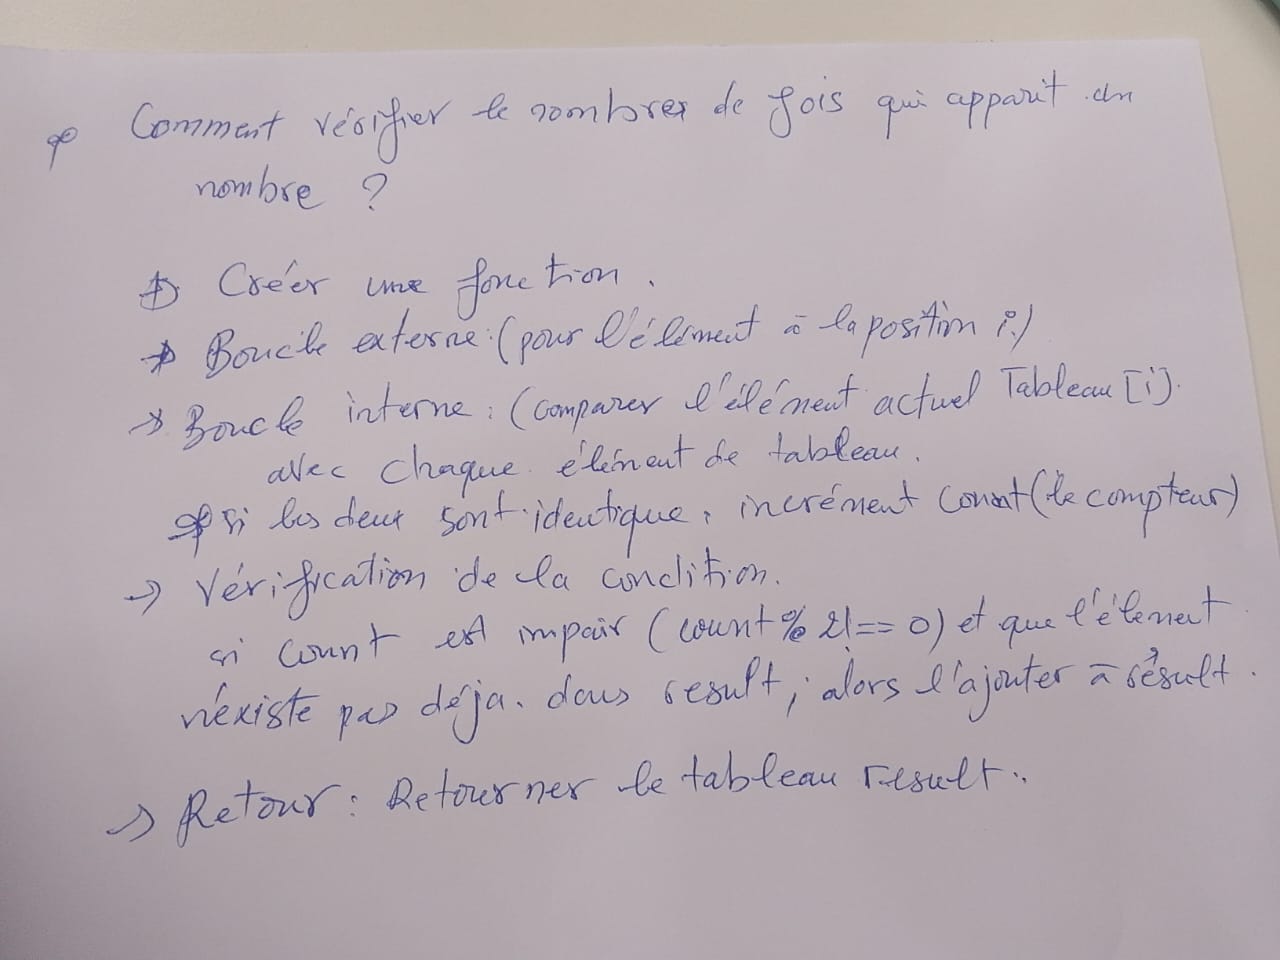 Comment vérifier le nombres de fois qui apparit un
nombre ?
Créer une fonction.
Boucle externe : (pour l'élément à la position i.)
Boucle interne : (comparer l'élément actuel Tableau [i].
avec chaque élément de tableau.
si les deux sont identique, incrément count (le compteur)
→ Vérification de la condition.
si count est impair (count % 2 !== 0) et que l'élément
n'existe pas déja. dans result, alors l'ajouter à résult.
→ Retour : Retourner le tableau result..